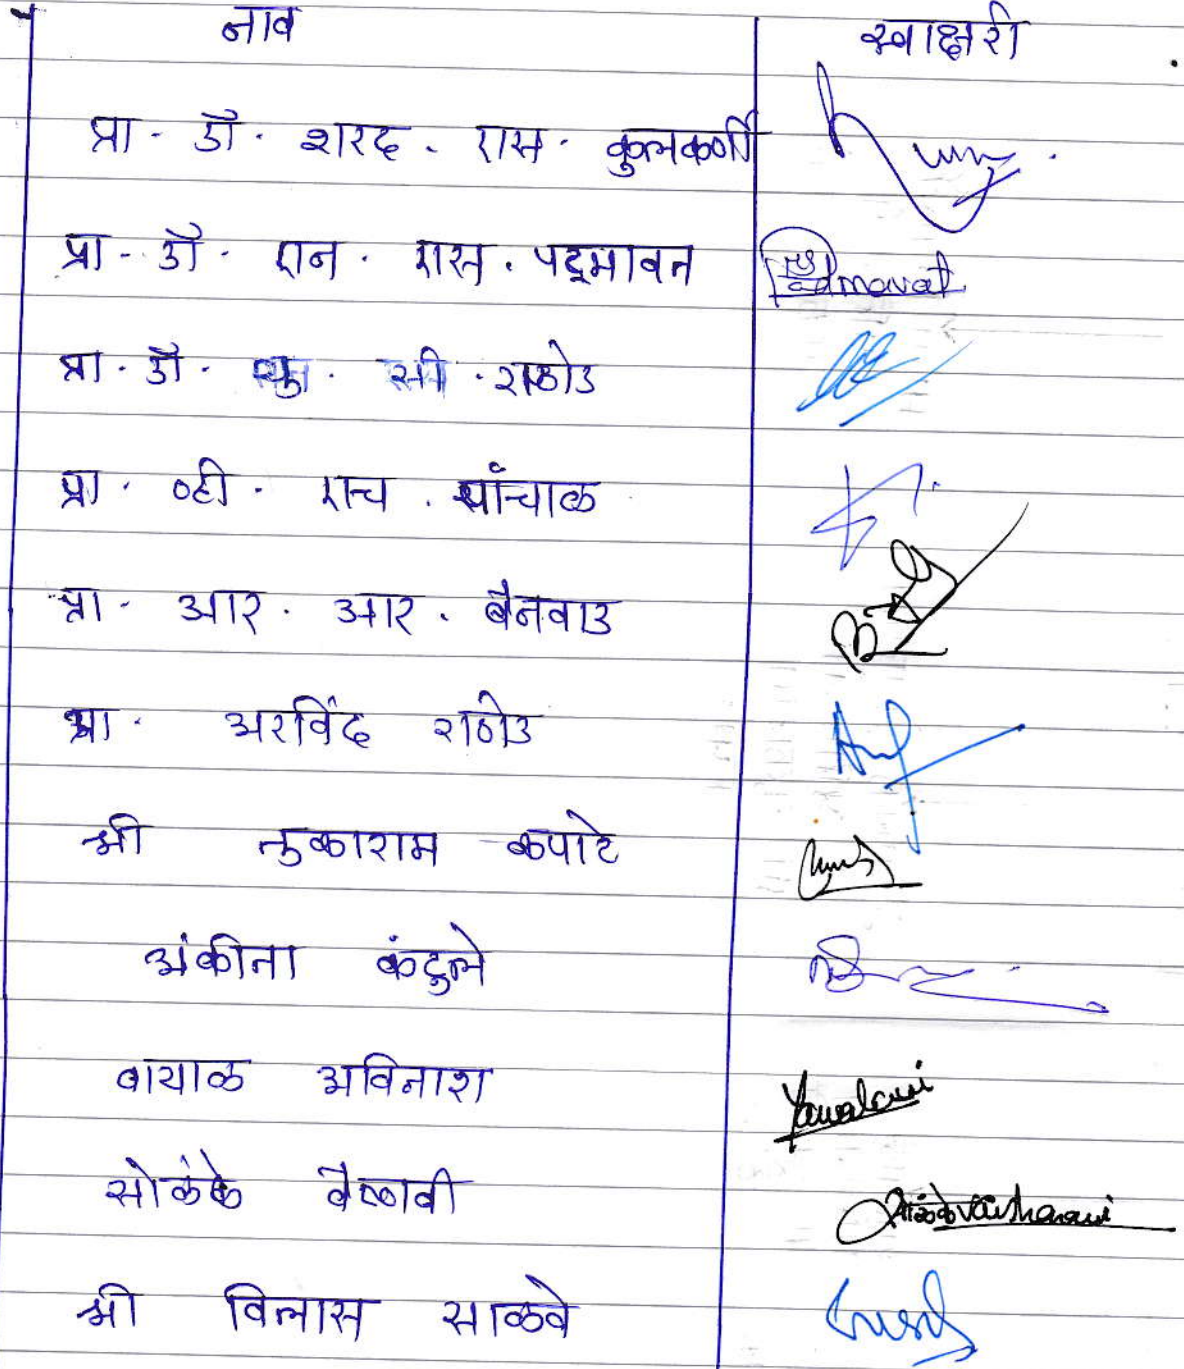 नाव स्वाक्षरी
प्रा. डॉ. शरद. एस. कुलकर्णी
प्रा. डॉ. एन. एस. पद्मावत Padmavat
प्रा. डॉ. यु. सी. राठोड
प्रा. व्ही. एच. पांचाळ
प्रा. आर. आर. बैनवाड
प्रा. अरविंद राठोड
श्री तुकाराम कपाटे
अंकीता कंदुले
वायाळ अविनाश
सोळंके वैष्णवी
श्री विलास साळवे